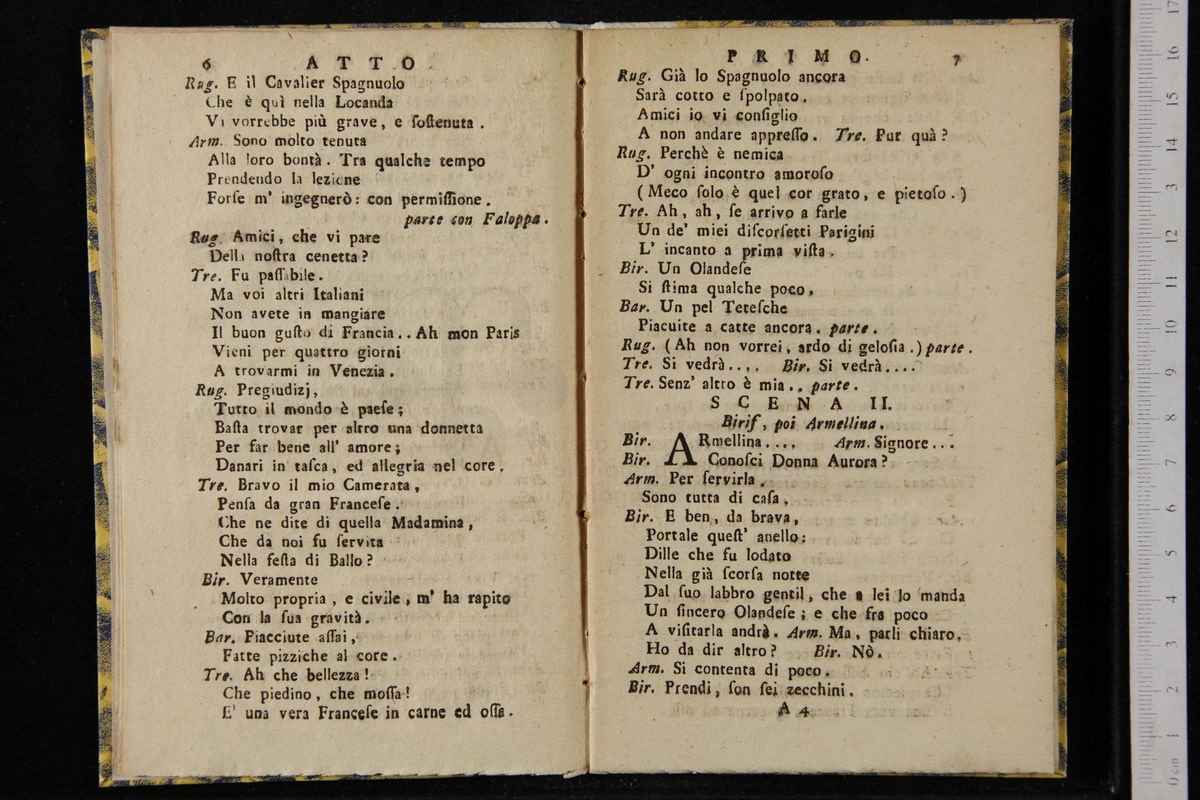 6 ATTO
Rug. E il Cavalier Spagnuolo
Che è quì nella Locanda
Vi vorrebbe più grave, e ſoſtenuta.
Arm. Sono molto tenuta
Alla loro bontà. Tra qualche tempo
Prendendo la lezione
Forſe m' ingegnerò: con permiſſione.
parte con Faloppa.
Rug. Amici, che vi pare
Della noſtra cenetta?
Tre. Fu paſſabile.
Ma voi altri Italiani
Non avete in mangiare
Il buon guſto di Francia.. Ah mon Paris
Vieni per quattro giorni
A trovarmi in Venezia.
Rug. Pregiudizj,
Tutto il mondo è paeſe;
Baſta trovar per altro una donnetta
Per far bene all' amore;
Danari in taſca, ed allegria nel core.
Tre. Bravo il mio Camerata,
Penſa da gran Franceſe.
Che ne dite di quella Madamina,
Che da noi fu ſervita
Nella feſta di Ballo?
Bir. Veramente
Molto propria, e civile, m' ha rapito
Con la ſua gravità.
Bar. Piacciute aſſai,
Fatte pizziche al core.
Tre. Ah che bellezza!
Che piedino, che moſſa!
E' una vera Franceſe in carne ed oſſa.
PRIMO. 7
Rug. Già lo Spagnuolo ancora
Sarà cotto e ſpolpato.
Amici io vi conſiglio
A non andare appreſſo. Tre. Pur quà?
Rug. Perchè è nemica
D' ogni incontro amoroſo
(Meco ſolo è quel cor grato, e pietoſo.)
Tre. Ah, ah, ſe arrivo a farle
Un de' miei diſcorſetti Parigini
L' incanto a prima viſta.
Bir. Un Olandeſe
Si ſtima qualche poco.
Bar. Un pel Teteſche
Piacuite a catte ancora. parte.
Rug. (Ah non vorrei, ardo di geloſia.) parte.
Tre. Si vedrà.... Bir. Si vedrà....
Tre. Senz' altro è mia.. parte.
SCENA II.
Birif, poi Armellina.
Bir. ARmellina.... Arm. Signore...
Bir. Conoſci Donna Aurora?
Arm. Per ſervirla.
Sono tutta di caſa.
Bir. E ben, da brava,
Portale queſt' anello:
Dille che fu lodato
Nella già ſcorſa notte
Dal ſuo labbro gentil, che a lei lo manda
Un ſincero Olandeſe; e che fra poco
A viſitarla andrà. Arm. Ma, parli chiaro,
Ho da dir altro? Bir. Nò.
Arm. Si contenta di poco.
Bir. Prendi, ſon ſei zecchini.
A 4